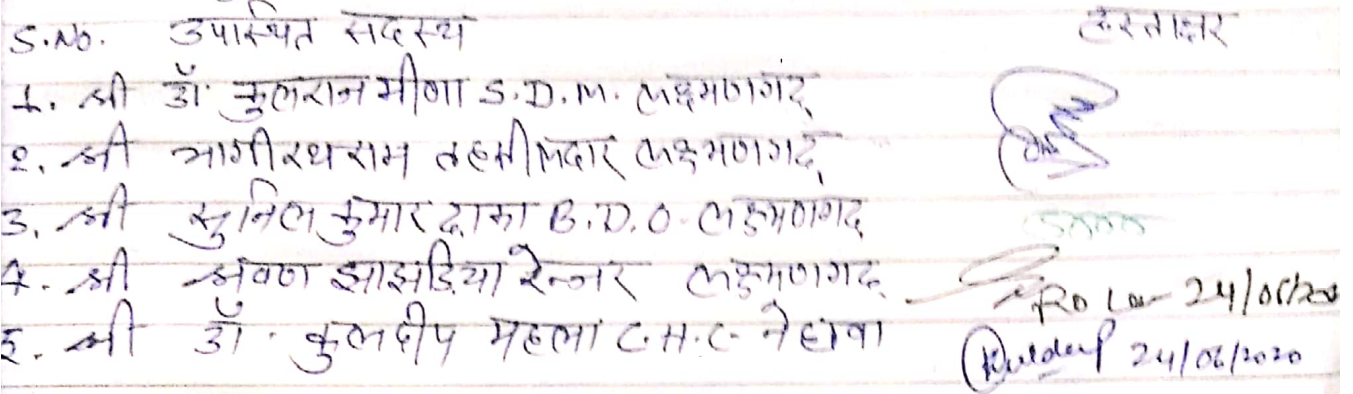 S.No. उपस्थित सदस्य हस्ताक्षर
1. श्री डॉ. कुलराज मीणा S.D.M. लक्ष्मणगढ़
2. श्री भागीरथ राम तहसीलदार लक्ष्मणगढ़
3. श्री सुनिल कुमार ढ़ाका B.D.O. लक्ष्मणगढ़
4. श्री श्रवण झाझड़िया रेन्जर लक्ष्मणगढ़ 24/06/20
5. श्री डॉ. कुलदीप महला C.H.C. नेछवा Kuldeep 24/06/2020